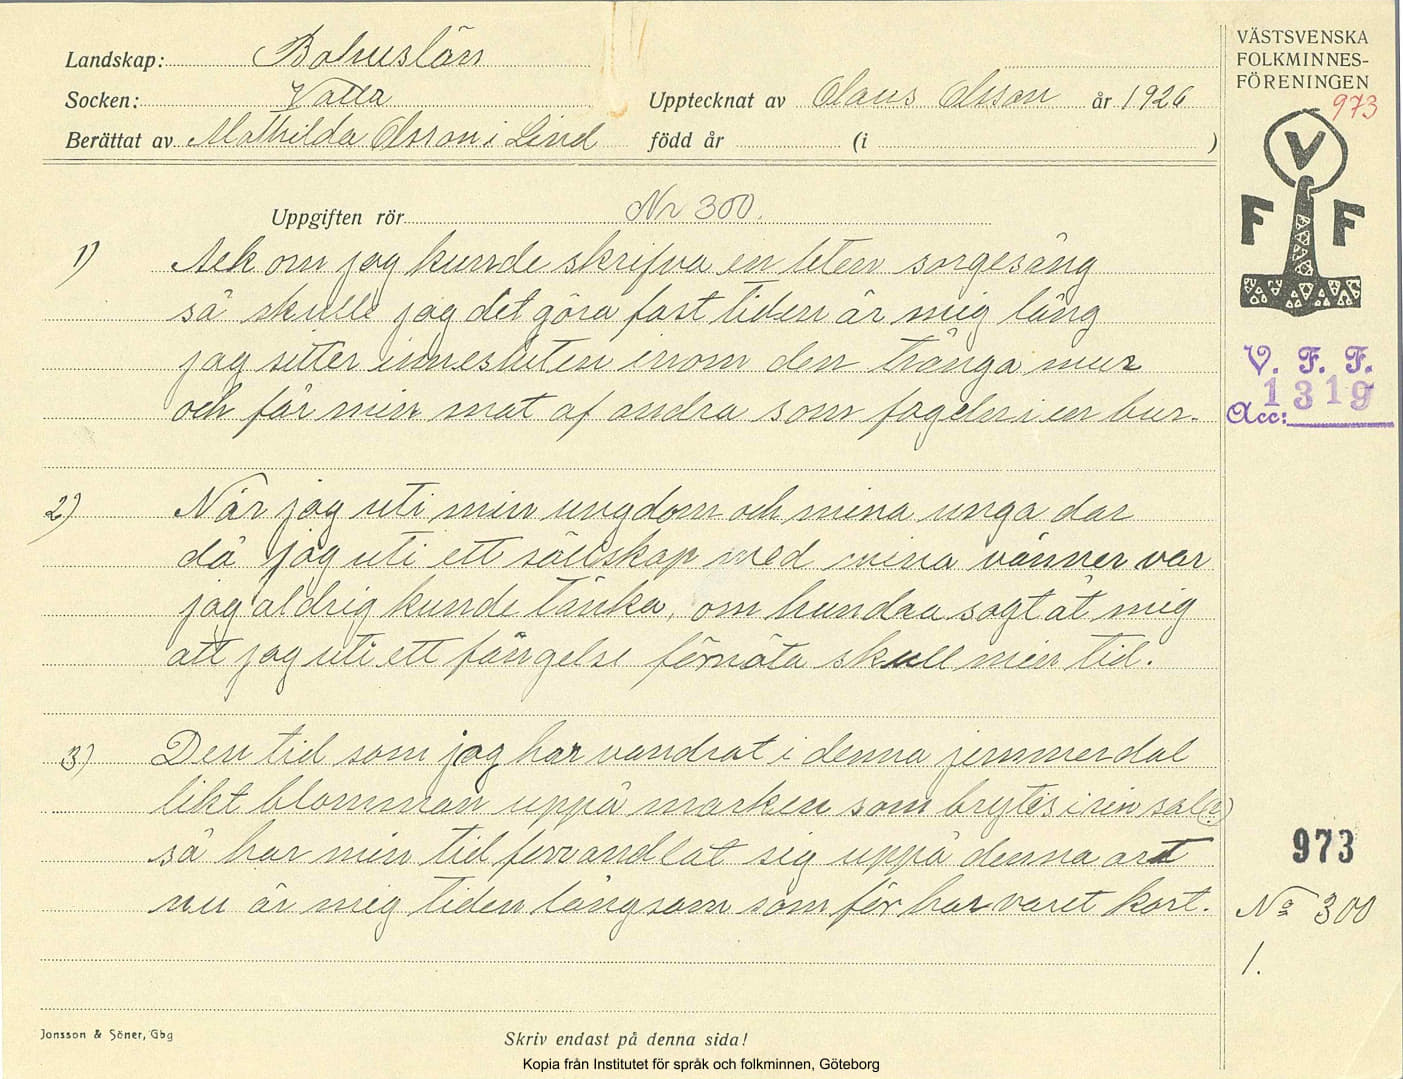 Landskap: Bohuslän
Socken: Valla
Upptecknat av Olaus Olsson år 1926
Berättat av Mathilda Olsson i Lind född år (i )
VÄSTSVENSKA
FOLKMINNES-
FÖRENINGEN
973
V
F F
Uppgiften rör Nr 300.
1) Ack om jag kunde skrifva en liten sorgesång
så skulle jag det göra fast tiden är mig lång
jag sitter innesluten inom den trånga mur
och får min mat af andra som fogeln i en bur.
V. F. F.
1319
Acc:
2) När jag uti min ungdom och mina unga dar
då jag uti ett sällskap med mina vänner var
jag aldrig kunde tänka, om hundra sagt åt mig
att jag uti ett fängelse förnöta skull min tid.
3) Den tid som jag har vandrat i denna jemmerdal
likt blomman uppå marken som brytes i sin sal(?)
så har min tid forvandlat sig uppå denna art
nu är mig tiden långsam som för har varet kort.
973
No 300
1.
Jonsson & Söner, Gbg
Skriv endast på denna sida!
Kopia från Institutet för språk och folkminnen, Göteborg